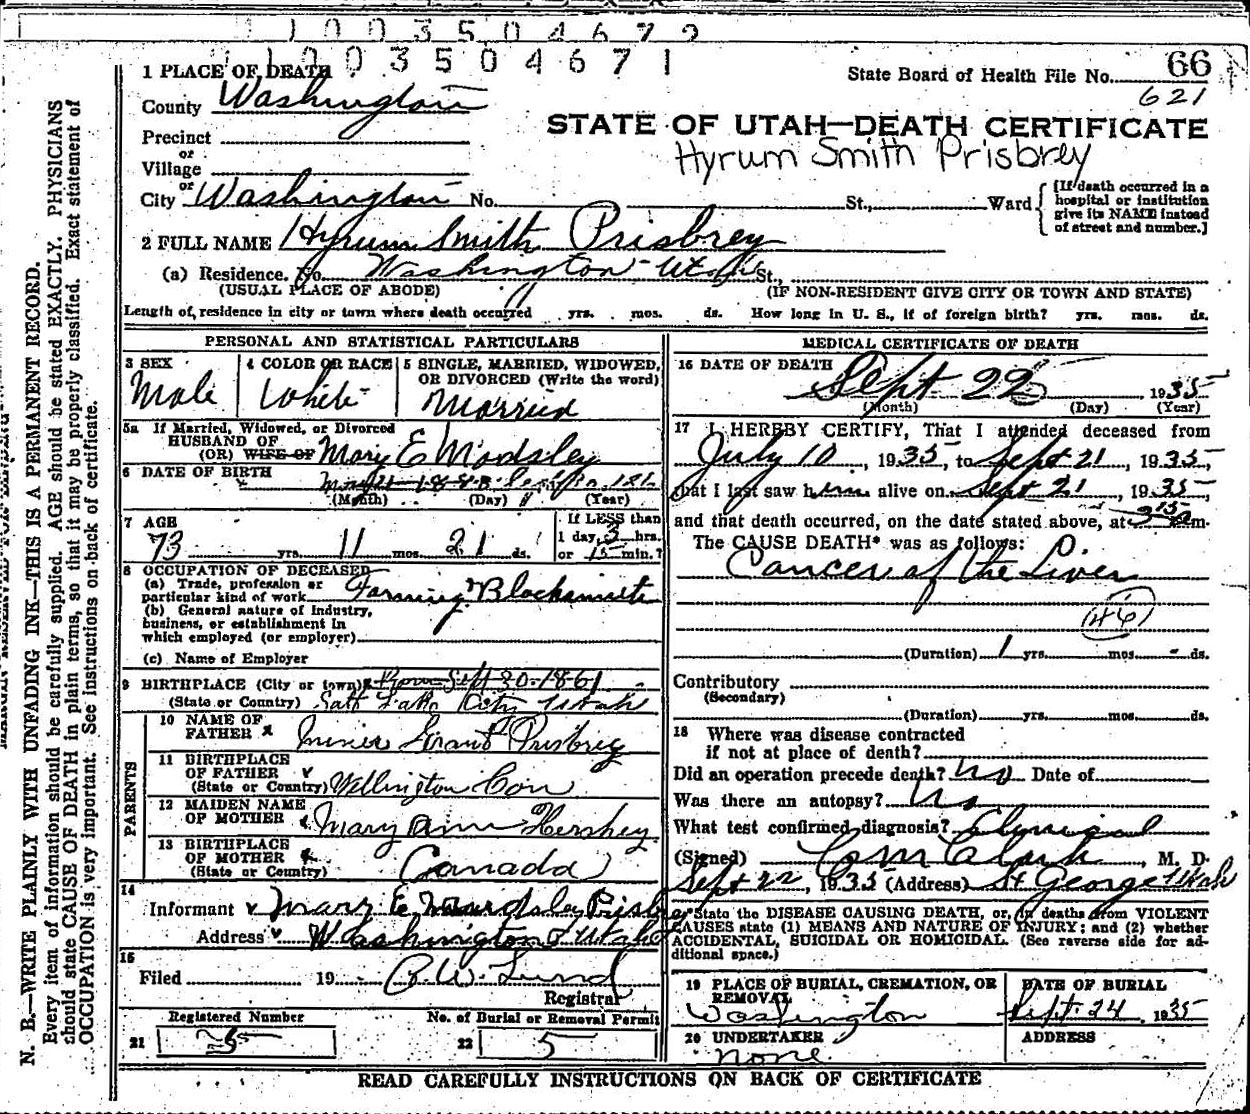 1 1 0 0 3 5 0 4 6 7 2
1 1 0 0 3 5 0 4 6 7 1
1 PLACE OF DEATH
State Board of Health File No. 66
621
County Washington
STATE OF UTAH—DEATH CERTIFICATE
Hyrum Smith Prisbrey
Precinct
or
Village
or
City Washington No. St., Ward
[If death occurred in a
hospital or institution
give its NAME instead
of street and number.]
2 FULL NAME Hyrum Smith Prisbrey
(a) Residence. No. Washington Utah St.,
(USUAL PLACE OF ABODE) (IF NON-RESIDENT GIVE CITY OR TOWN AND STATE)
Length of residence in city or town where death occurred yrs. mos. ds. How long in U. S., if of foreign birth? yrs. mos. ds.
PERSONAL AND STATISTICAL PARTICULARS
3 SEX
Male
4 COLOR OR RACE
White
5 SINGLE, MARRIED, WIDOWED,
OR DIVORCED (Write the word)
Married
5a If Married, Widowed, or Divorced
HUSBAND OF
(OR) WIFE OF Mary E Wardsley
6 DATE OF BIRTH
(Month) (Day) (Year)
7 AGE
73 yrs. 11 mos. 21 ds.
If LESS than
1 day, 3 hrs.
or 15 min.?
8 OCCUPATION OF DECEASED
(a) Trade, profession or
particular kind of work Farming & Blacksmith
(b) General nature of Industry,
business, or establishment in
which employed (or employer)
(c) Name of Employer
9 BIRTHPLACE (City or town) Born Sept 30-1861
(State or Country) Salt Lake City Utah
PARENTS
10 NAME OF
FATHER Miner Grant Prisbrey
11 BIRTHPLACE
OF FATHER
(State or Country) Wellington Con
12 MAIDEN NAME
OF MOTHER Mary Ann Hershey
13 BIRTHPLACE
OF MOTHER
(State or Country) Canada
14
Informant Mary E Wardsley Prisbrey
Address Washington Utah
15
Filed 19 R. W. Lund
Registrar
Registered Number
21
No. of Burial or Removal Permit
22 5
MEDICAL CERTIFICATE OF DEATH
16 DATE OF DEATH
Sept 22 1935
(Month) (Day) (Year)
17 I HEREBY CERTIFY, That I attended deceased from
July 10, 1935, to Sept 21, 1935,
that I last saw him alive on Sept 21, 1935,
and that death occurred, on the date stated above, at 3 15 am.
The CAUSE DEATH* was as follows:
Cancer of the Liver
(46)
(Duration) 1 yrs. mos. - ds.
Contributory
(Secondary)
(Duration) yrs. mos. ds.
18 Where was disease contracted
if not at place of death?
Did an operation precede death? No Date of
Was there an autopsy? No
What test confirmed diagnosis? Clinical
(Signed) M. D.
Sept 22, 1935 (Address) St George Utah
*State the DISEASE CAUSING DEATH, or, in deaths from VIOLENT
CAUSES state (1) MEANS AND NATURE OF INJURY; and (2) whether
ACCIDENTAL, SUICIDAL OR HOMICIDAL. (See reverse side for ad-
ditional space.)
19 PLACE OF BURIAL, CREMATION, OR
REMOVAL
Washington
DATE OF BURIAL
Sept. 24 1935
20 UNDERTAKER
none
ADDRESS
READ CAREFULLY INSTRUCTIONS ON BACK OF CERTIFICATE
N. B.—WRITE PLAINLY WITH UNFADING INK—THIS IS A PERMANENT RECORD.
Every item of information should be carefully supplied. AGE should be stated EXACTLY. PHYSICIANS
should state CAUSE OF DEATH in plain terms, so that it may be properly classified. Exact statement of
OCCUPATION is very important. See instructions on back of certificate.